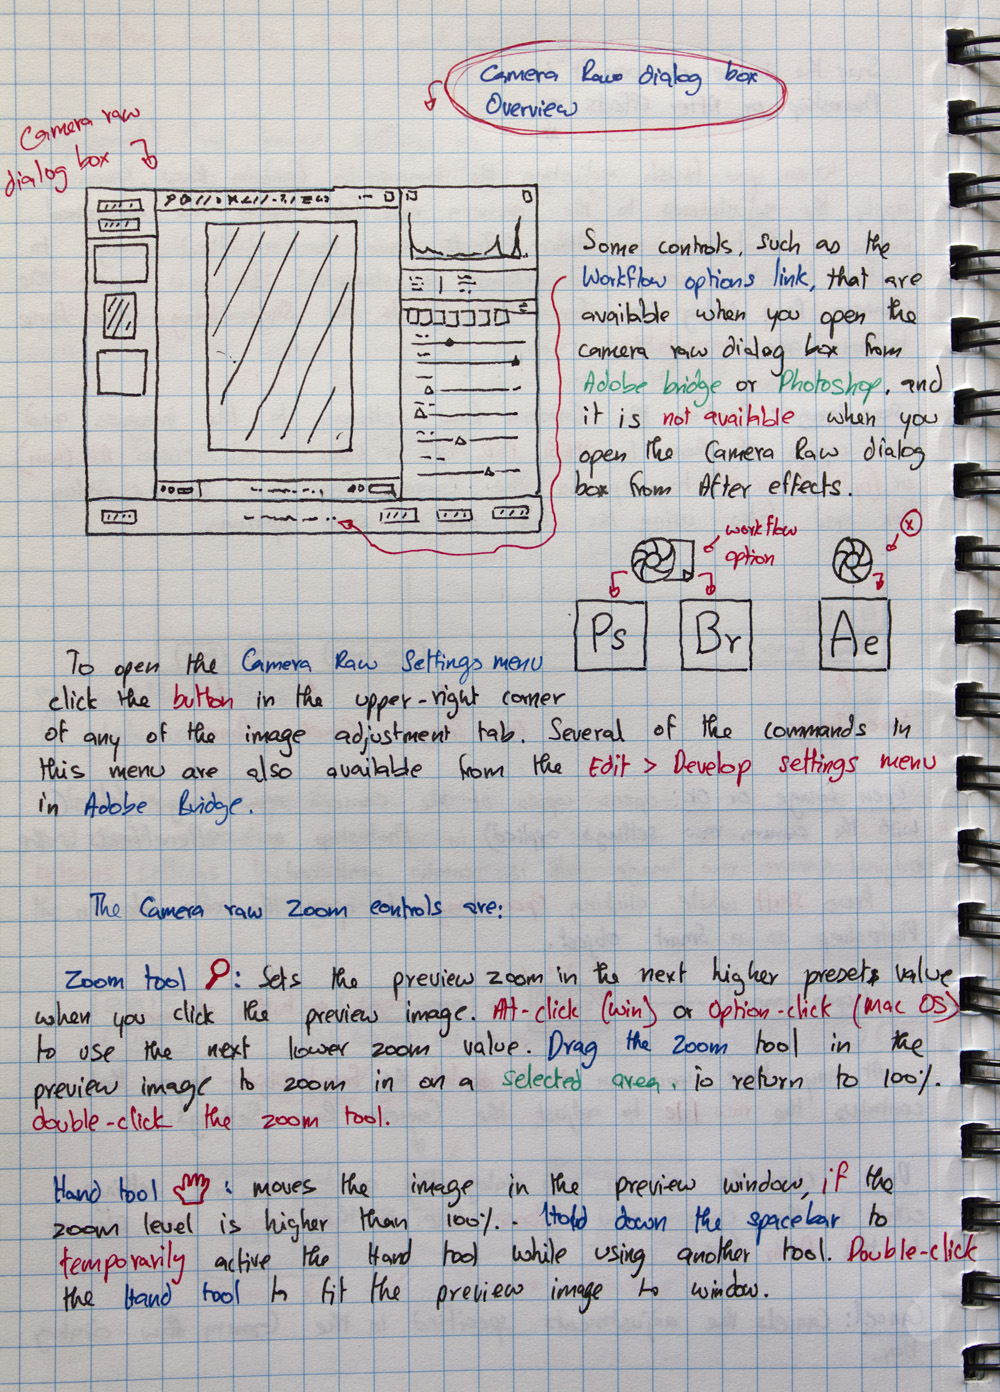 Camera Raw dialog box
Overview
Camera raw
dialog box
Some controls, such as the
Workflow options link, that are
available when you open the
camera raw dialog box from
Adobe bridge or Photoshop, and
it is not available when you
open the Camera Raw dialog
box from After effects.
workflow
option
x
Ps
Br
Ae
To open the Camera Raw Settings menu
click the button in the upper-right corner
of any of the image adjustment tab. Several of the commands in
this menu are also available from the Edit > Develop settings menu
in Adobe Bridge.
The Camera raw Zoom controls are:
Zoom tool : Sets the preview zoom in the next higher presets value
when you click the preview image. Alt-click (win) or Option-click (Mac OS)
to use the next lower zoom value. Drag the Zoom tool in the
preview image to zoom in on a selected area. to return to 100%.
double-click the zoom tool.
Hand tool : moves the image in the preview window, if the
zoom level is higher than 100%. Hold down the spacebar to
temporarily active the Hand tool while using another tool. Double-click
the Hand tool to fit the preview image to window.